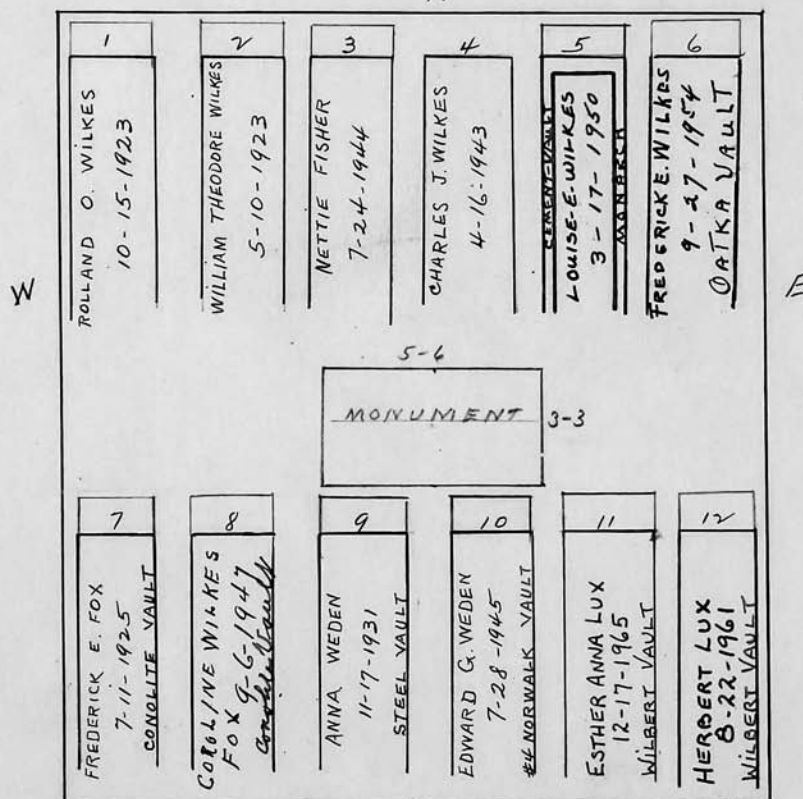 1
ROLLAND O. WILKES
10-15-1923
2
WILLIAM THEODORE WILKES
5-10-1923
3
NETTIE FISHER
7-24-1944
4
CHARLES J. WILKES
4-16-1943
5
CEMENT-VAULT
LOUISE-E-WILKES
3-17-1950
MONARCH
6
FREDERICK E. WILKES
9-27-1954
OATKA VAULT
W
E
5-6
MONUMENT
3-3
7
FREDERICK E. FOX
7-11-1925
CONOLITE VAULT
8
COROLINE WILKES
FOX 9-6-1947
Conolite Vault
9
ANNA WEDEN
11-17-1931
STEEL VAULT
10
EDWARD G. WEDEN
7-28-1945
#4 NORWALK VAULT
11
ESTHER ANNA LUX
12-17-1965
WILBERT VAULT
12
HERBERT LUX
8-22-1961
WILBERT VAULT